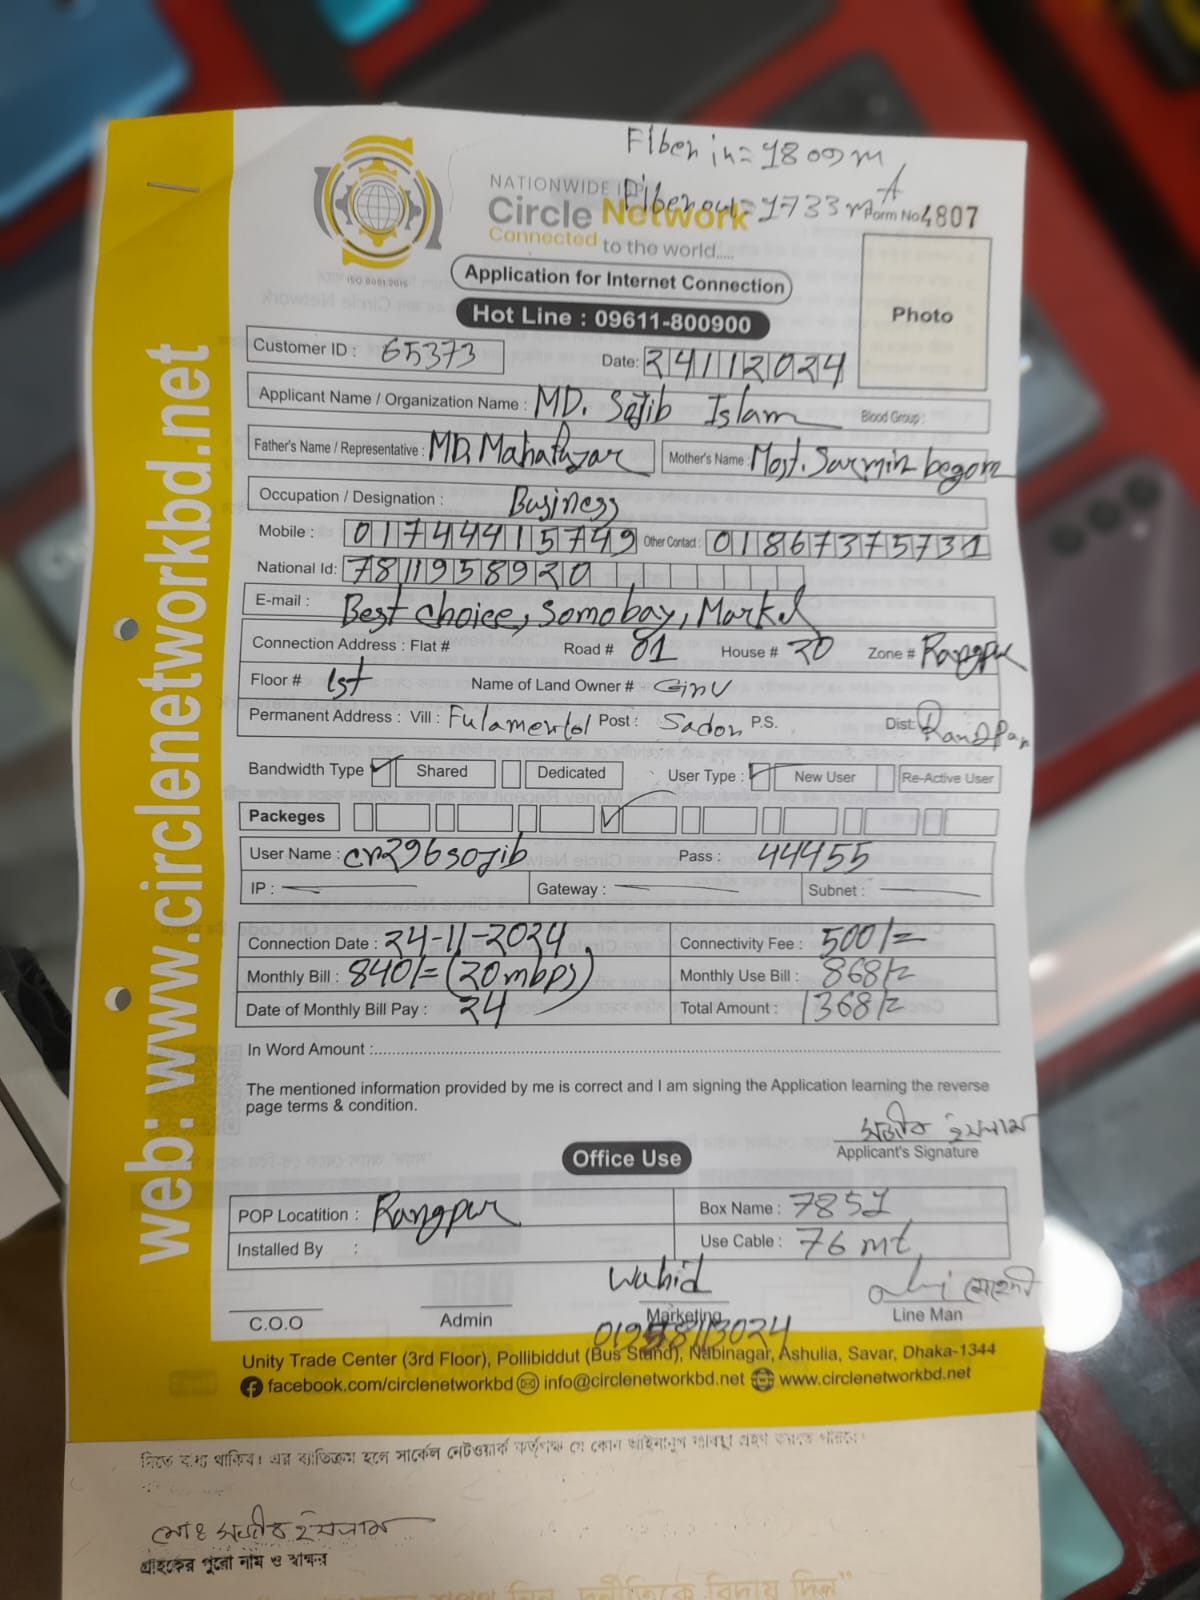 Fiber in = 1809 m
NATIONWIDE ISP Fiber out = 1733 m
Circle Network
Form No 4807
Connected to the world.....
ISO 9001:2015
Application for Internet Connection
Photo
Hot Line : 09611-800900
web: www.circlenetworkbd.net
Customer ID : 65373
Date: 24112024
Applicant Name / Organization Name : MD. Sajib Islam Blood Group :
Father's Name / Representative : MD. Mother's Name : Most. Sarmin begom
Occupation / Designation : Business
Mobile : 01744415749 Other Contact : 01867375731
National Id: 7811958920
E-mail : Best choice, Somobay, Market
Connection Address : Flat # Road # 01 House # 20 Zone # Rangpur
Floor # 1st Name of Land Owner # Ginu
Permanent Address : Vill : Post : Sador P.S. Dist:
Bandwidth Type Shared Dedicated User Type : New User Re-Active User
Packeges
User Name : cr296sojib Pass : 44455
IP : Gateway : Subnet :
Connection Date : 24-11-2024 Connectivity Fee : 500/=
Monthly Bill : 840/= (20mbps) Monthly Use Bill : 868/=
Date of Monthly Bill Pay : 24 Total Amount : 1368/=
In Word Amount :
The mentioned information provided by me is correct and I am signing the Application learning the reverse
page terms & condition.
সজীব ইসলাম
Applicant's Signature
Office Use
POP Locatition : Rangpur Box Name : 7851
Installed By : Use Cable : 76 mt
Wahid
C.O.O Admin Marketing Line Man
Unity Trade Center (3rd Floor), Pollibiddut (Bus Stand), Nabinagar, Ashulia, Savar, Dhaka-1344
facebook.com/circlenetworkbd info@circlenetworkbd.net www.circlenetworkbd.net
দিতে বাধ্য থাকিব। এর ব্যতিক্রম হলে সার্কেল নেটওয়ার্ক কর্তৃপক্ষ যে কোন আইনানুগ ব্যবস্থা গ্রহণ করতে পারবে।
মোঃ সজীব ইসলাম
গ্রাহকের পুরো নাম ও স্বাক্ষর